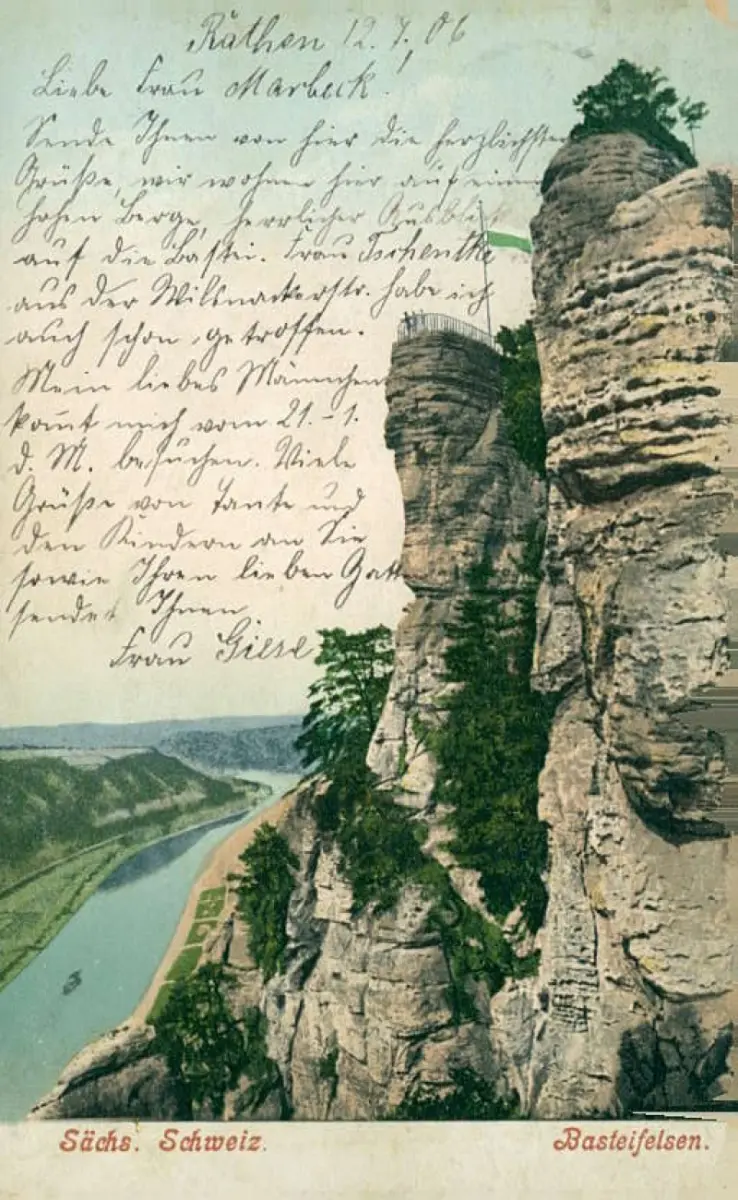 Rathen 12.7.06
Liebe Frau Marbeck!
Sende Ihnen von hier die herzlichsten
Grüße, wir wohnen hier auf einem
hohen Berge, herrlicher Ausblick
auf die Bastei. Frau Tschentke
aus der Wilsnackerstr. habe ich
auch schon getroffen.
Mein liebes Männchen
kommt mich vom 21. - 1.
d. M. besuchen. Viele
Grüße von Tante und
den Kindern an Sie
sowie Ihren lieben Gatt
sendet Ihnen
Frau Giese
Sächs. Schweiz.
Basteifelsen.